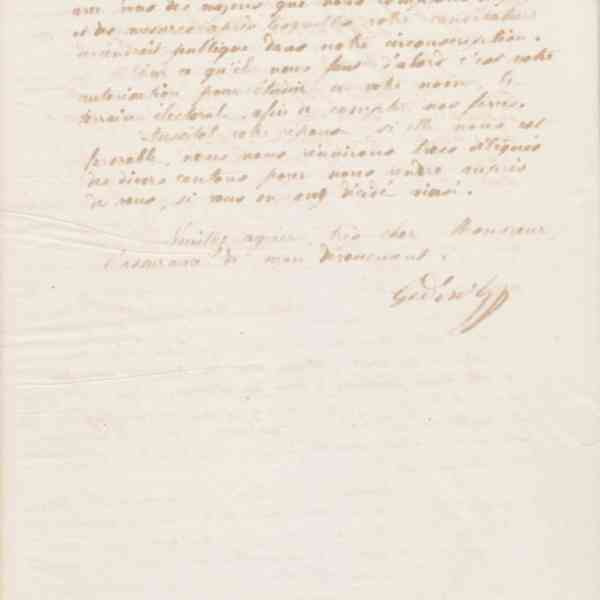 avec vous des moyens que nous
et des mesures après lesquelles votre candidature
deviendrait publique dans notre circonscription.
ce qu'il nous faut d'abord c'est votre
autorisation pour étudier en votre nom, le
terrain électoral, afin de compter nos forces.
Aussitôt votre réponse si elle nous est
favorable, nous nous réunirons tous délégués
des divers cantons pour nous rendre auprès
de vous, si vous en avez décidé ainsi.
Veuillez agréer, très cher Monsieur,
l'assurance de mon dévouement.